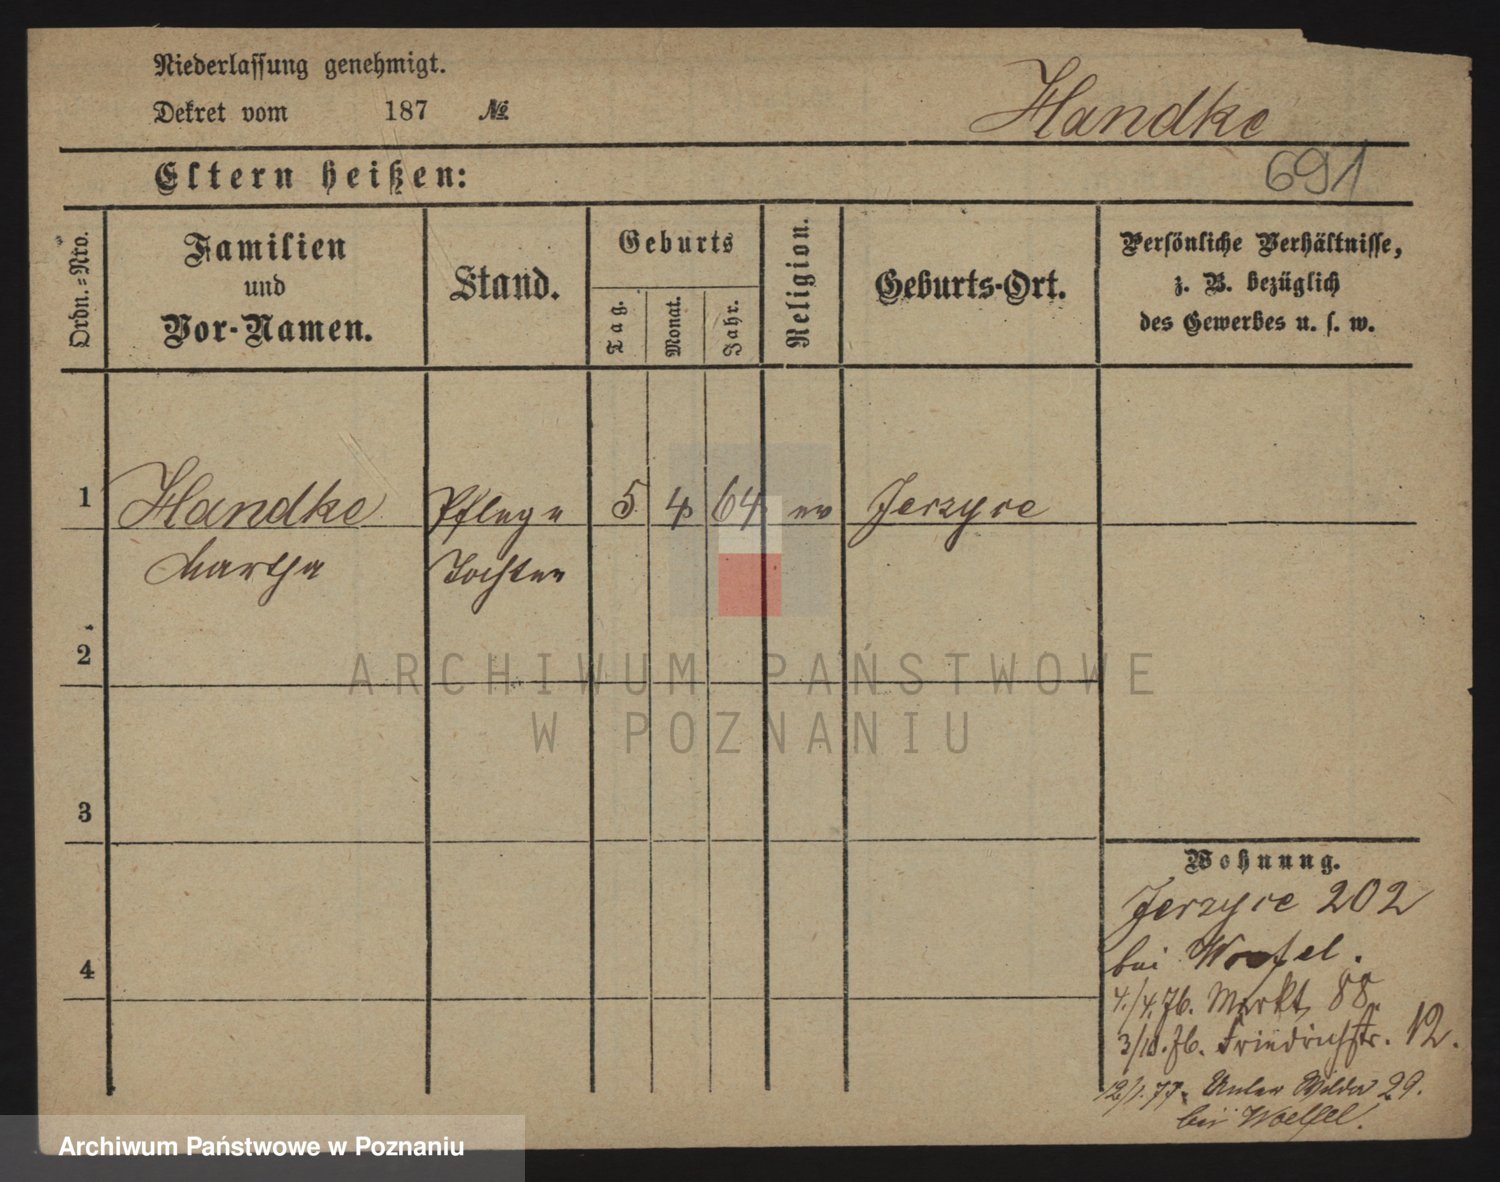 Niederlassung genehmigt.
Dekret vom 187 №
Handke
691
Eltern heißen:
Ordn.=Nro.
Familien
und
Vor-Namen.
Stand.
Geburts
Tag.
Monat.
Jahr.
Religion.
Geburts-Ort.
Persönliche Verhältnisse,
z. B. bezüglich
des Gewerbes u. s. w.
1 Handke Pflege 5 4 64 ev Jerzyce
Martha Tochter
2
ARCHIWUM PAŃSTWOWE
W POZNANIU
3
Wohnung.
Jerzyce 202
bei Woefel.
4
4./4. 76. Markt 88.
3/10. 76. Friedrichstr. 12.
12/1. 77. Unter Wilda 29.
bei Woelfel.
Archiwum Państwowe w Poznaniu